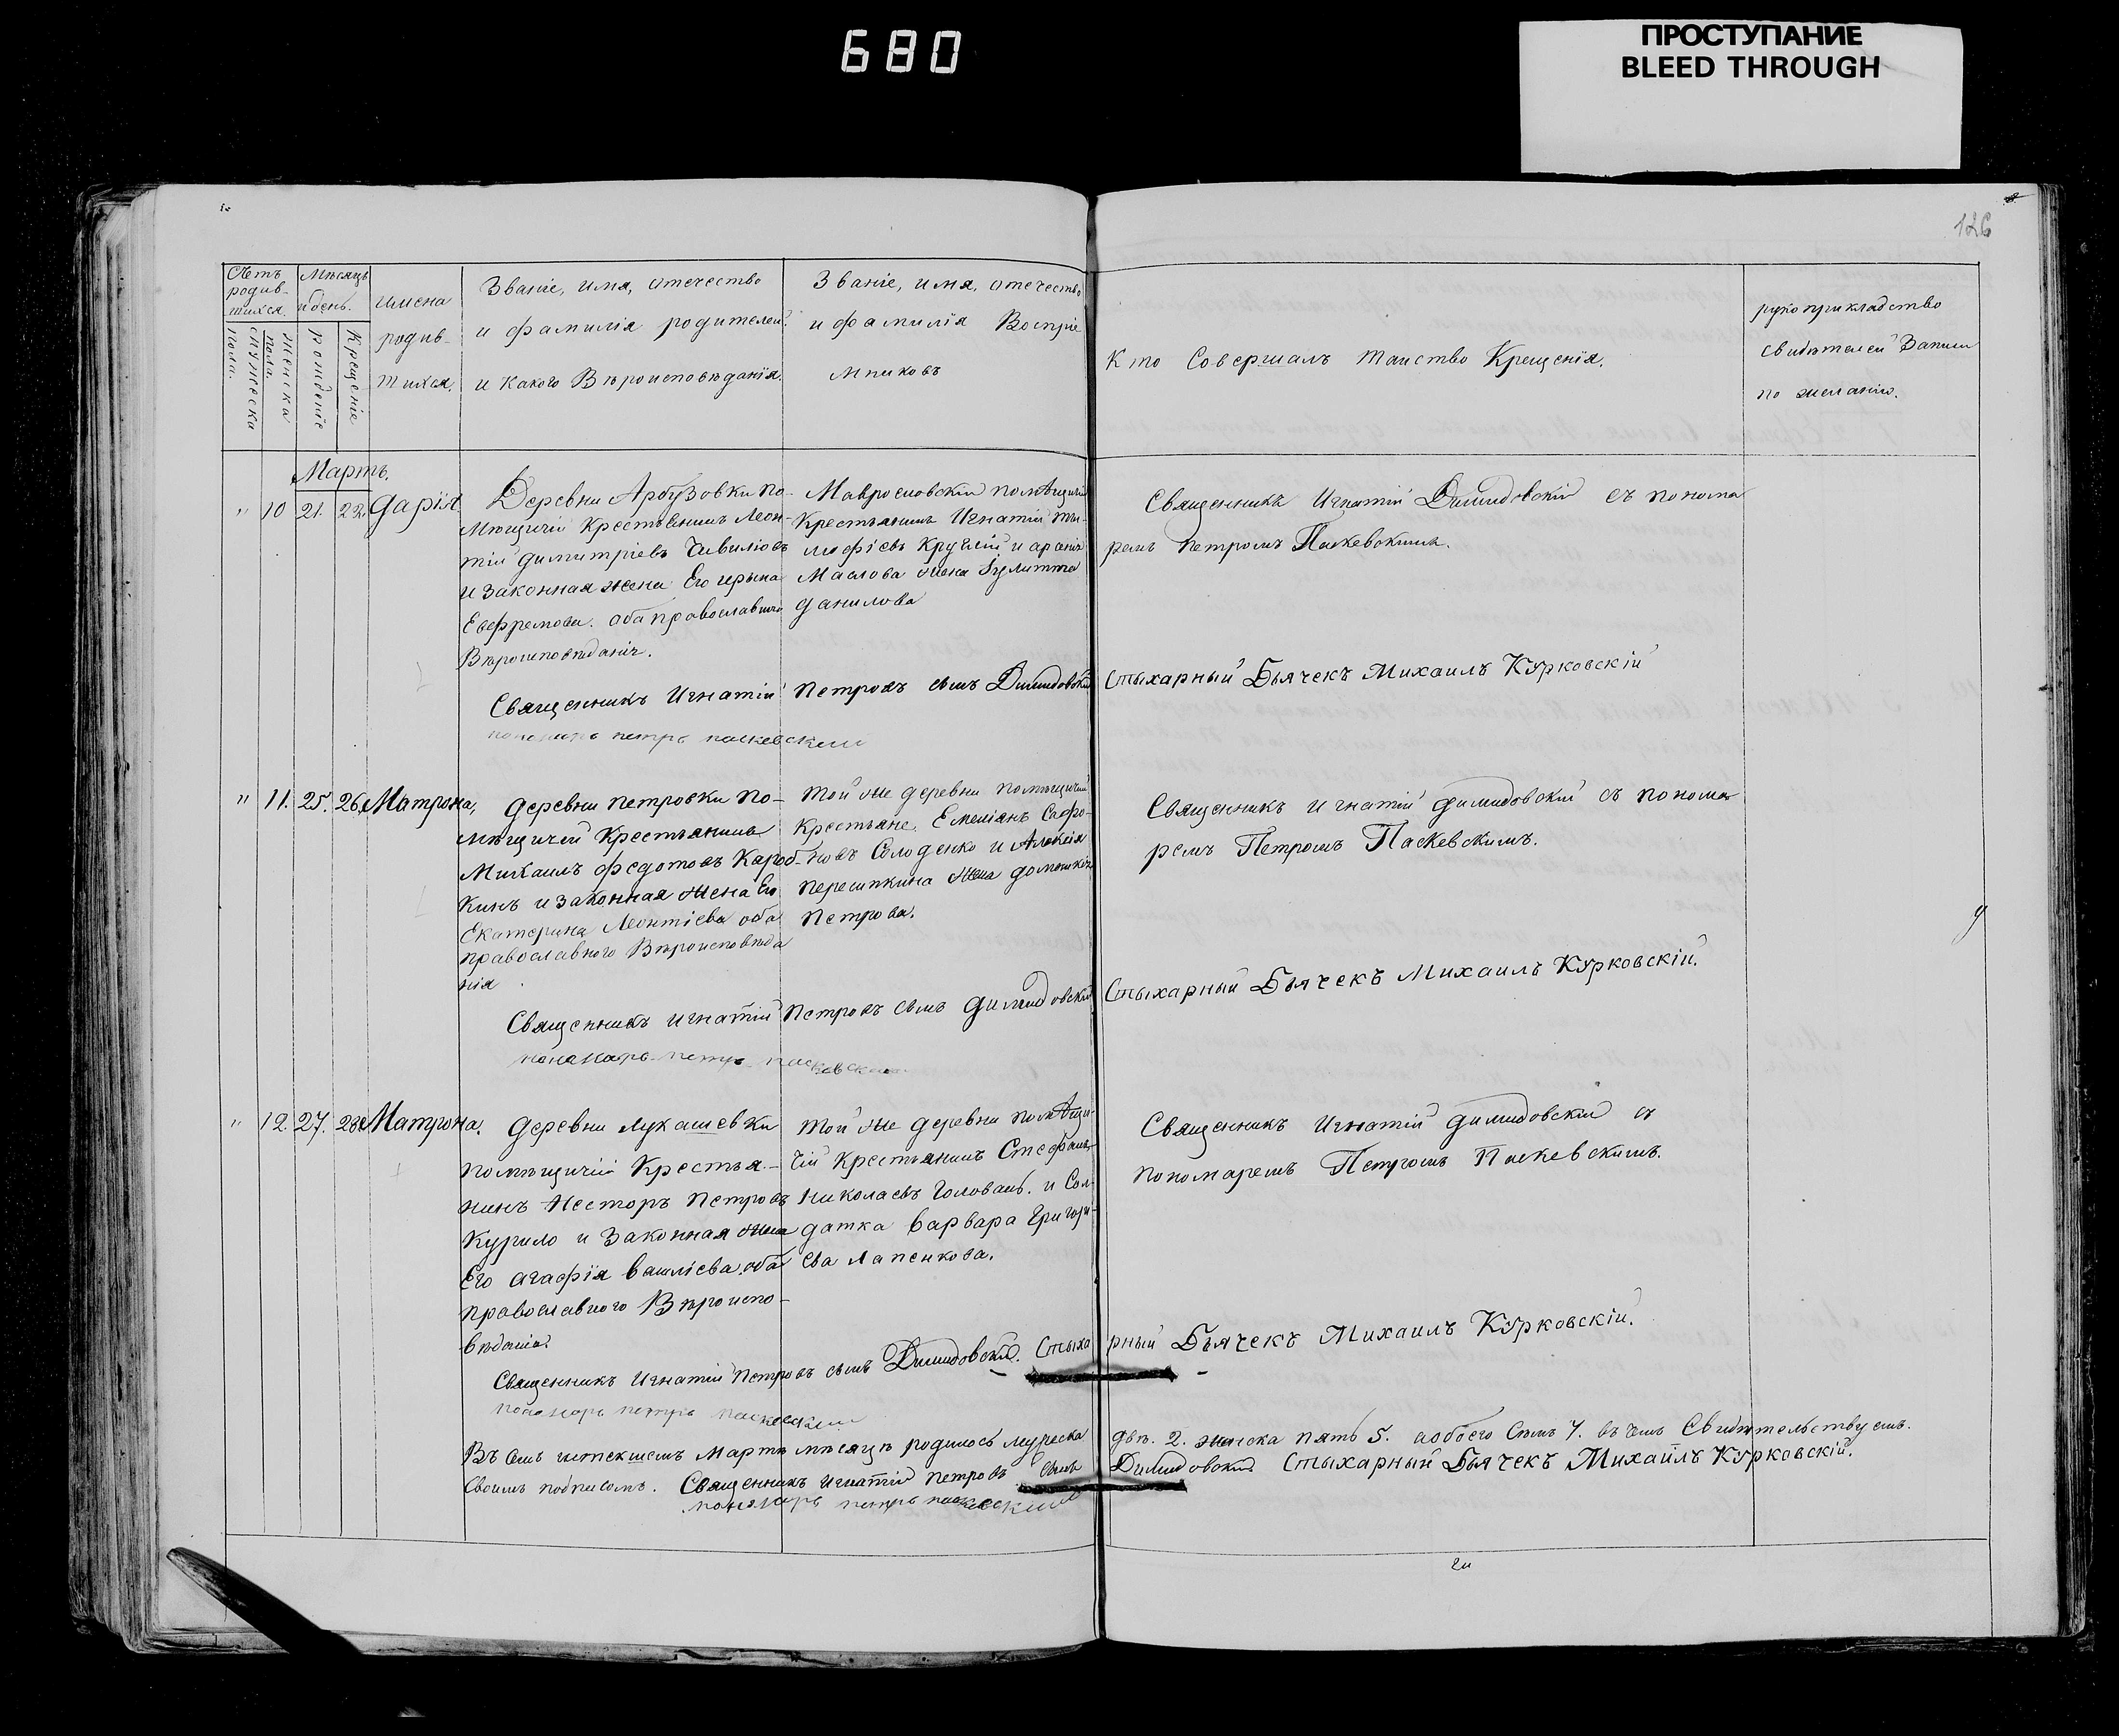 680
ПРОСТУПАНИЕ
BLEED THROUGH
126
Летъ родив-шихся.
мужеска пола.
женска пола.
Мѣсяцъ и день.
рожденіе
Крещеніе
имена родив-шихся.
Званіе, имя, отечество
и фамилія родителей
и какого Вѣроисповѣданія.
Званіе, имя, отечество
и фамилія Воспріе
мниковъ
Кто Совершалъ таинство Крещенія.
рукоприкладство
свидѣтелей Записи
по желанію.
Мартъ.
" 10 21. 22. Дарія
Деревни Арбузовки по-
мѣщичій Крестьянинъ Леон-
тій Димитріевъ
и законная жена Его
Ефремова. оба православнаго
Вѣроисповѣданія.
помѣщичій
Крестьянинъ Игнатій Ти-
мофіевъ Круглій и
Маслова жена
Данилова
Священникъ Игнатій Димидовскій съ понома
ремъ Петромъ Паскевскимъ.
Священникъ Игнатій Петровъ сынъ Димидовскій Стыхарный Дьячекъ Михаилъ Курковскій
пономарь петръ паскевскии
" 11. 25. 26. Матрона,
Деревни Петровки по-
мѣщичій Крестьянинъ
Михаилъ Федотовъ Короб-
кинъ и законная жена Его
Екатерина Леонтіева оба
православного Вѣроисповѣда
нія
Той же деревни помѣщичій
Крестьяне, Емеліянъ Сафро-
новъ Солоденко и
жена
Петрова.
Священникъ Игнатій Димидовскій съ понома
ремъ Петромъ Паскевскимъ.
Священникъ Игнатій Петровъ сынъ Димидовскій Стыхарный Дьячекъ Михаилъ Курковскій.
пономарь петръ паскевскии
" 12. 27. 28. Матрона.
Деревни Лукашевки
помѣщичій Крестья-
нинъ Несторъ Петровъ
Курило и Законная жена
Его Агафія Васіліева. оба
православного Вѣроиспо-
вѣданія
Той же деревни помѣщи-
чій Крестьянинъ Стефанъ
Николаевъ Голованъ. и Сол-
датка Варвара Григорі-
ева Лапенкова.
Священникъ Игнатій Димидовскій съ
пономаремъ Петромъ Паскевскимъ.
Священникъ Игнатій Петровъ сынъ Димидовскій. Стыхарный Дьячекъ Михаилъ Курковскій.
пономарь петръ паскевскии
Въ семъ истекшемъ Мартѣ мѣсяцѣ родилось мужеска двѣ. 2. женска пять 5. а обоего семъ 7. въ чемъ Свидѣтельствуемъ.
Своимъ подписомъ. Священникъ Игнатій Петровъ сынъ Димидовскій Стыхарный Дьячекъ Михаилъ Курковскій.
пономарь петръ паскевскии